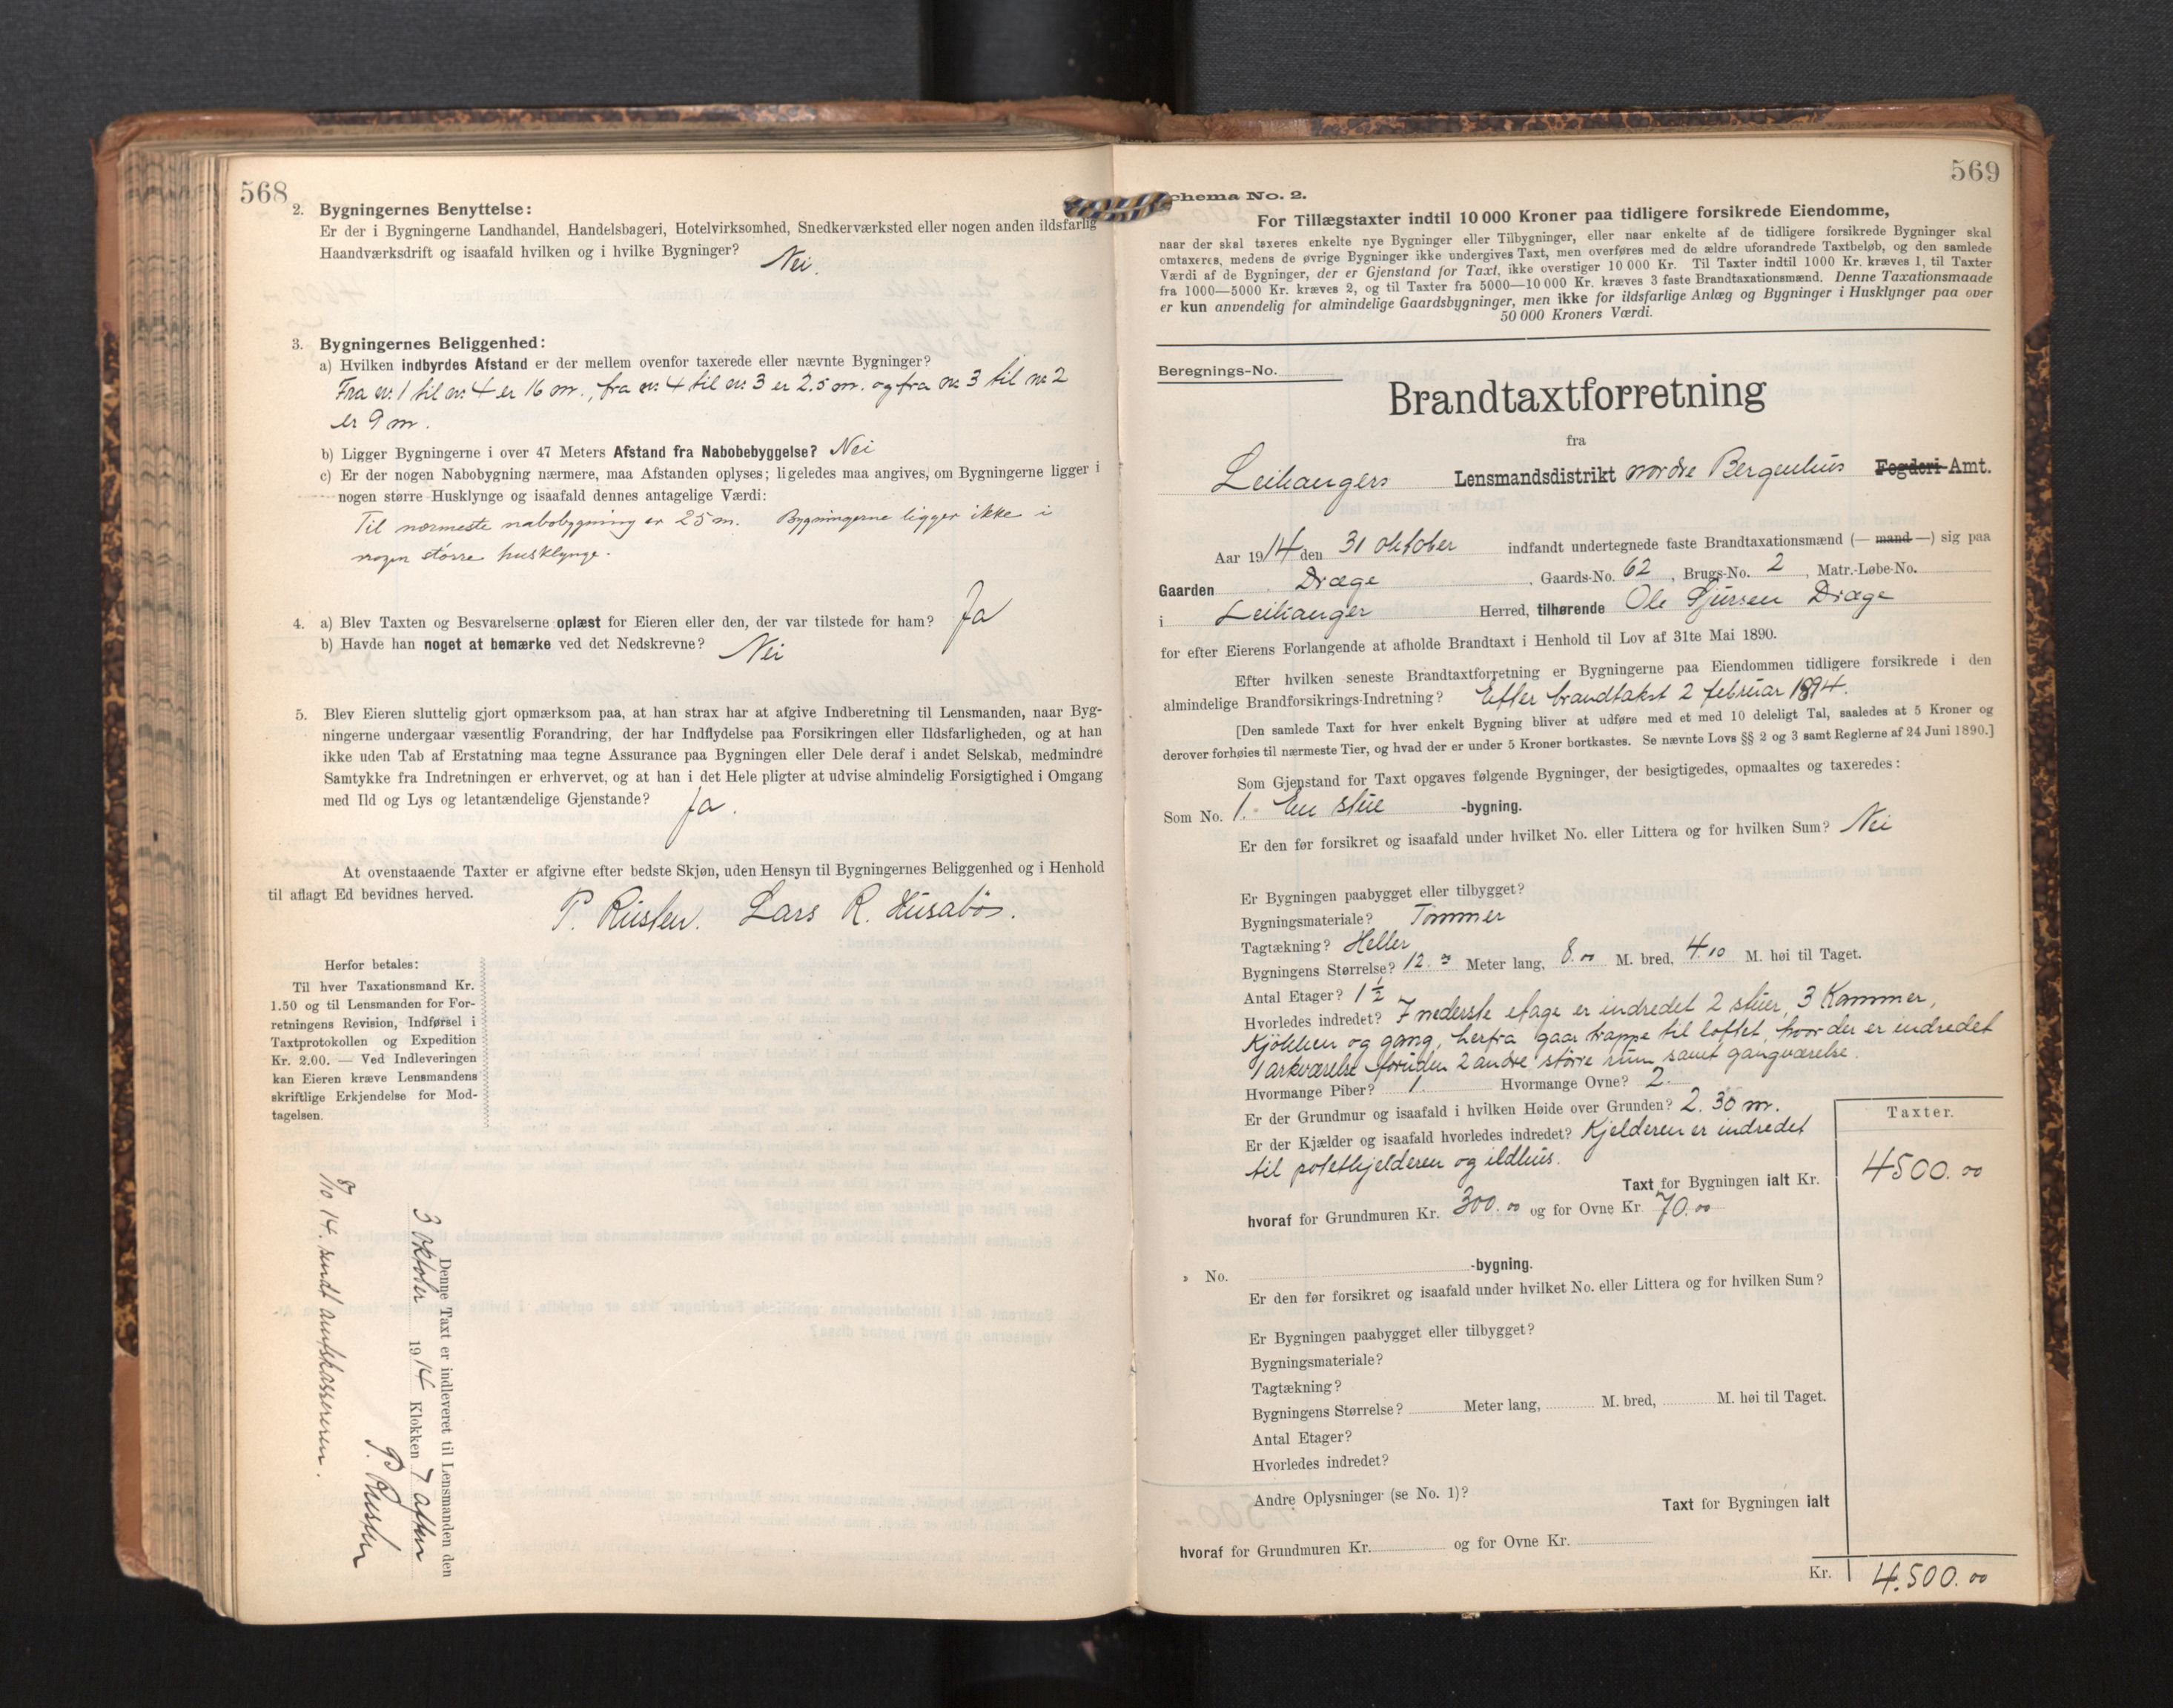 568
2. Bygningernes Benyttelse:
Er der i Bygningerne Landhandel, Handelsbageri, Hotelvirksomhed, Snedkerværksted eller nogen anden ildsfarlig
Haandværksdrift og isaafald hvilken og i hvilke Bygninger? Nei.
3. Bygningernes Beliggenhed:
a) Hvilken indbyrdes Afstand er der mellem ovenfor taxerede eller nævnte Bygninger?
Fra nr. 1 til nr. 4 er 16 m., fra nr. 4 til nr. 3 er 2.5 m. og fra nr. 3 til nr. 2
er 9 m.
b) Ligger Bygningerne i over 47 Meters Afstand fra Nabobebyggelse? Nei
c) Er der nogen Nabobygning nærmere, maa Afstanden oplyses; ligeledes maa angives, om Bygningerne ligger i
nogen større Husklynge og isaafald dennes antagelige Værdi:
Til nærmeste nabobygning er 25 m. Bygningerne ligger ikke i
nogen større husklynge.
4. a) Blev Taxten og Besvarelserne oplæst for Eieren eller den, der var tilstede for ham? Ja
b) Havde han noget at bemærke ved det Nedskrevne? Nei
5. Blev Eieren sluttelig gjort opmærksom paa, at han strax har at afgive Indberetning til Lensmanden, naar Byg-
ningerne undergaar væsentlig Forandring, der har Indflydelse paa Forsikringen eller Ildsfarligheden, og at han
ikke uden Tab af Erstatning maa tegne Assurance paa Bygningen eller Dele deraf i andet Selskab, medmindre
Samtykke fra Indretningen er erhvervet, og at han i det Hele pligter at udvise almindelig Forsigtighed i Omgang
med Ild og Lys og letantændelige Gjenstande? Ja.
At ovenstaaende Taxter er afgivne efter bedste Skjøn, uden Hensyn til Bygningernes Beliggenhed og i Henhold
til aflagt Ed bevidnes herved.
P. Rusten. Lars R. Husabø.
Herfor betales:
Til hver Taxationsmand Kr.
1.50 og til Lensmanden for For-
retningens Revision, Indførsel i
Taxtprotokollen og Expedition
Kr. 2.00. — Ved Indleveringen
kan Eieren kræve Lensmandens
skriftlige Erkjendelse for Mod-
tagelsen.
Denne Taxt er indleveret til Lensmanden den
3 oktober 1914 Klokken 7 aften
P. Rusten
8/10 14. sendt amtskassereren.
569
chema No. 2.
For Tillægstaxter indtil 10 000 Kroner paa tidligere forsikrede Eiendomme,
naar der skal taxeres enkelte nye Bygninger eller Tilbygninger, eller naar enkelte af de tidligere forsikrede Bygninger skal
omtaxeres, medens de øvrige Bygninger ikke undergives Taxt, men overføres med de ældre uforandrede Taxtbeløb, og den samlede
Værdi af de Bygninger, der er Gjenstand for Taxt, ikke overstiger 10 000 Kr. Til Taxter indtil 1000 Kr. kræves 1, til Taxter
fra 1000—5000 Kr. kræves 2, og til Taxter fra 5000—10 000 Kr. kræves 3 faste Brandtaxationsmænd. Denne Taxationsmaade
er kun anvendelig for almindelige Gaardsbygninger, men ikke for ildsfarlige Anlæg og Bygninger i Husklynger paa over
50 000 Kroners Værdi.
Beregnings-No.
Brandtaxtforretning
fra
Leikangers Lensmandsdistrikt nordre Bergenhus Fogderi-Amt.
Aar 1914 den 31 oktober indfandt undertegnede faste Brandtaxationsmænd (— mand —) sig paa
Gaarden Dræge, Gaards-No. 62, Brugs-No. 2, Matr.-Løbe-No.
i Leikanger Herred, tilhørende Ole Sjursen Dræge
for efter Eierens Forlangende at afholde Brandtaxt i Henhold til Lov af 31te Mai 1890.
Efter hvilken seneste Brandtaxtforretning er Bygningerne paa Eiendommen tidligere forsikrede i den
almindelige Brandforsikrings-Indretning? Efter brandtakst 2 februar 1894.
[Den samlede Taxt for hver enkelt Bygning bliver at udføre med et med 10 deleligt Tal, saaledes at 5 Kroner og
derover forhøies til nærmeste Tier, og hvad der er under 5 Kroner bortkastes. Se nævnte Lovs §§ 2 og 3 samt Reglerne af 24 Juni 1890.]
Som Gjenstand for Taxt opgaves følgende Bygninger, der besigtigedes, opmaaltes og taxeredes:
Som No. 1. En stue -bygning.
Er den før forsikret og isaafald under hvilket No. eller Littera og for hvilken Sum? Nei
Er Bygningen paabygget eller tilbygget?
Bygningsmateriale? Tømmer
Tagtækning? Heller
Bygningens Størrelse? 12. Meter lang, 8.00 M. bred, 4.10 M. høi til Taget.
Antal Etager? 1 1/2
Hvorledes indredet? I nederste etage er indredet 2 stuer, 3 Kammer,
Kjøkken og gang, herfra gaar trappe til loftet, hvor der er indredet
1 arkværelse foruden 2 andre større rum samt gangværelse.
Hvormange Piber? 1. Hvormange Ovne? 2.
Er der Grundmur og isaafald i hvilken Høide over Grunden? 2.30 m.
Er der Kjælder og isaafald hvorledes indredet? Kjelderen er indredet
til potetkjelderen og ildhus.
Taxter.
Taxt for Bygningen ialt Kr. 4500.00
hvoraf for Grundmuren Kr. 300.00 og for Ovne Kr. 70.00
» No. -bygning.
Er den før forsikret og isaafald under hvilket No. eller Littera og for hvilken Sum?
Er Bygningen paabygget eller tilbygget?
Bygningsmateriale?
Tagtækning?
Bygningens Størrelse? Meter lang, M. bred, M. høi til Taget.
Antal Etager?
Hvorledes indredet?
Andre Oplysninger (se No. 1)?
Taxt for Bygningen ialt
hvoraf for Grundmuren Kr. og for Ovne Kr.
Kr. 4.500.00